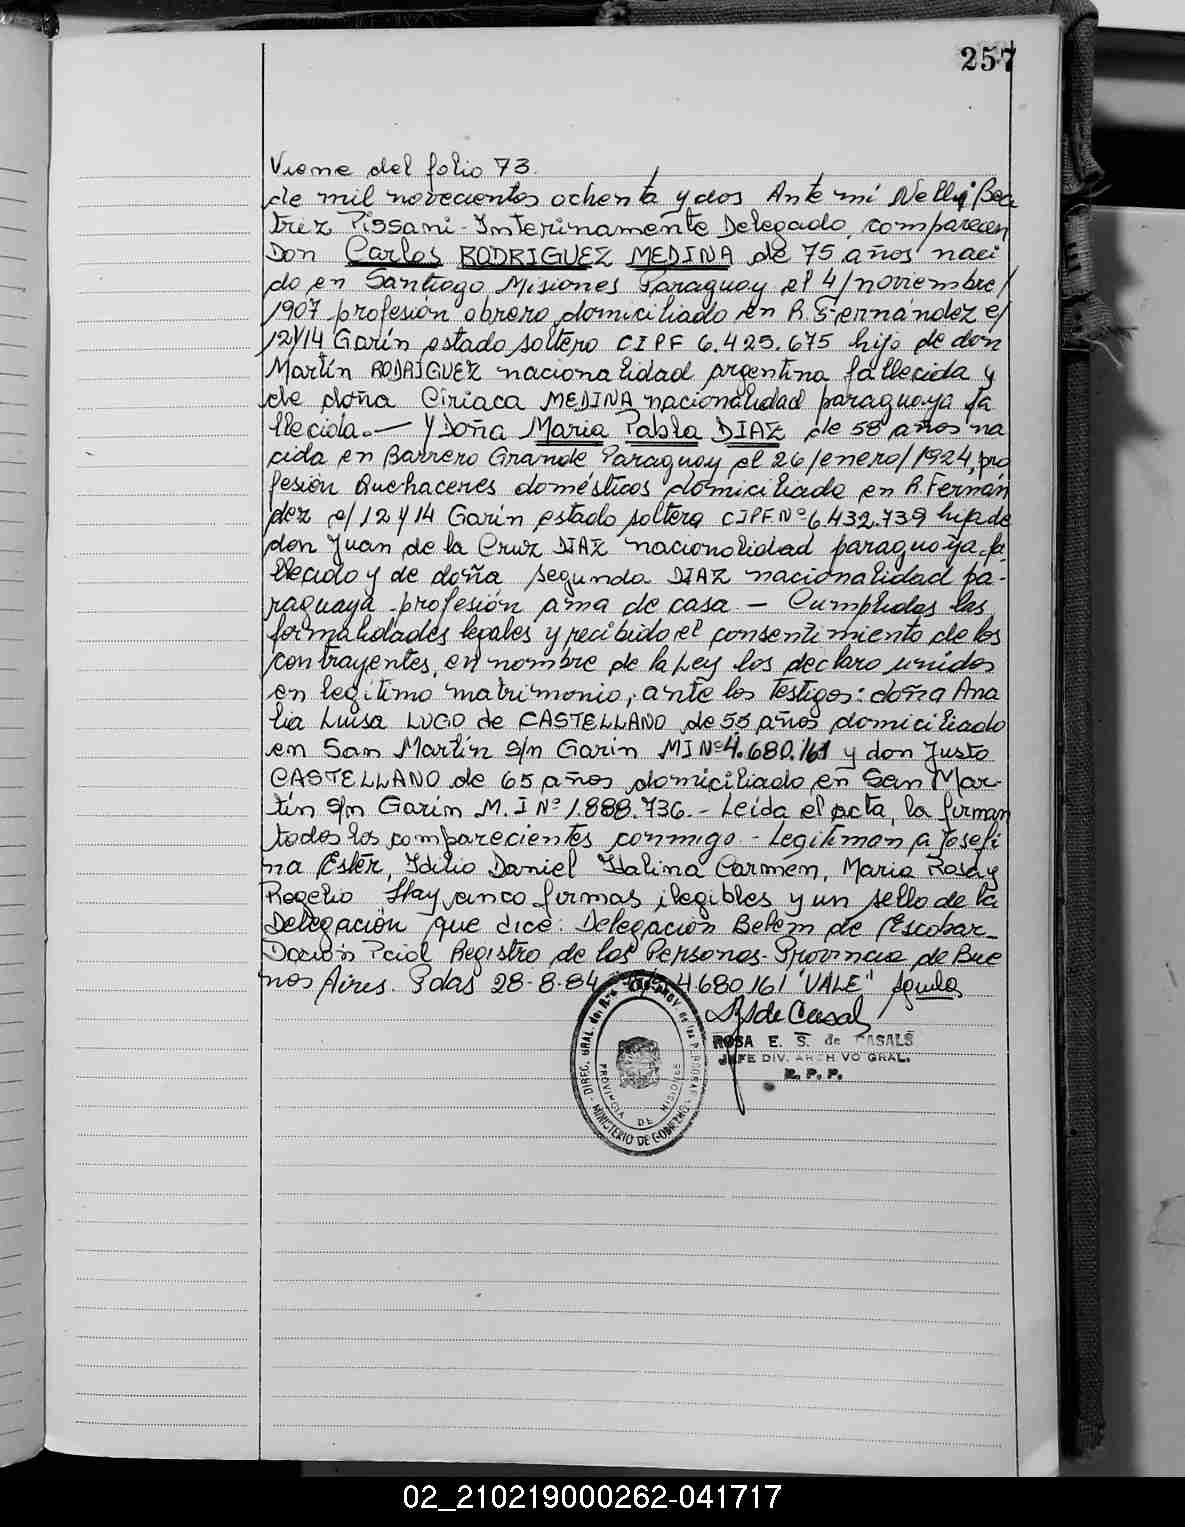 257
Viene del folio 73.
de mil novecientos ochenta y dos Ante mí Nelly Bea
triz Pissani - Interinamente Delegado, comparecen
Don Carlos RODRIGUEZ MEDINA de 75 años naci
do en Santiago Misiones Paraguay el 4/noviembre/
1907 profesión obrero domiciliado en R. Fernández e/
12y14 Garín estado soltero CIPF 6.425.675 hijo de don
Martín RODRIGUEZ nacionalidad argentina fallecida y
de doña Ciriaca MEDINA nacionalidad paraguaya fa
llecida.— Y Doña Maria Pabla DIAZ de 58 años na
cida en Barrero Grande Paraguay el 26/enero/1924, pro
fesión Quehaceres domésticos domiciliada en R. Fernán
dez e/12 y 14 Garín estado soltera CIPF. Nº 6.432.739 hija de
don Juan de la Cruz DIAZ nacionalidad paraguaya fa
llecido y de doña Segunda DIAZ nacionalidad pa-
raguaya profesión ama de casa — Cumplidas las
formalidades legales y recibido el consentimiento de los
contrayentes, en nombre de la Ley los declaro unidos
en legítimo matrimonio, ante los testigos: doña Ana
lia Luisa LUGO de CASTELLANO de 55 años domiciliado
en San Martín s/n Garin MI Nº 4.680.161 y don Justo
CASTELLANO de 65 años domiciliado en San Mar-
tín s/n Garín M.I Nº 1.888.736.- Leída el acta, la firman
todos los comparecientes conmigo - Legitiman a Josefi
na Ester, Idilio Daniel Idalina Carmen, Maria Rosa y
Rogelio Hay cinco firmas ilegibles y un sello de la
Delegación que dice: Delegación Belém de Escobar-
Dccion Pcial Registro de las Personas - Provincia de Bue
nos Aires. Pdas 28-8-84 4680161 "VALE"
ROSA E. S. de CASALS
JEFE DIV. ARCHIVO GRAL.
R. P. P.
PROVINCIA DE MISIONES
MINISTERIO DE GOBIERNO
02_210219000262-041717